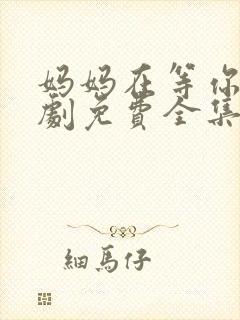 妈妈在等你
劇免費全集
細馬仔